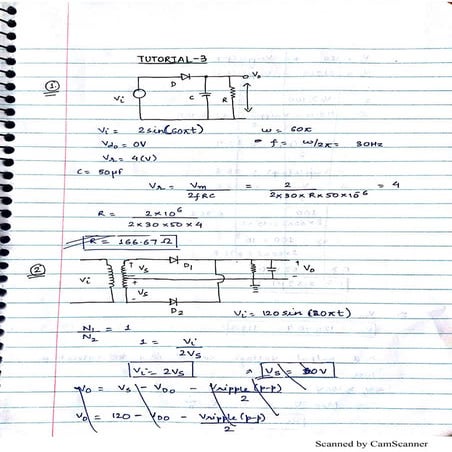 TUTORIAL-3
①
D
V₀
Vi
C
R
Vi = 2sin(60πt)
ω = 60π
Vd₀ = 0V
f = ω/2π = 30Hz
Vr = 4(V)
C = 50μf
Vr = Vm / 2fRC = 2 / 2×30×R×50×10⁻⁶ = 4
R = 2×10⁶ / 2×30×50×4
R = 166.67Ω
②
Vi
+
Vs
-
+
Vs
-
D1
D2
+
V₀
-
Vi = 120sin(20πt)
N1/N2 = 1
1 = Vi / 2Vs
Vi = 2Vs
V₀ = Vs - VD0 - Vripple(p-p)/2
V₀ = 120 - VD0 - Vripple(p-p)/2
Scanned by CamScanner